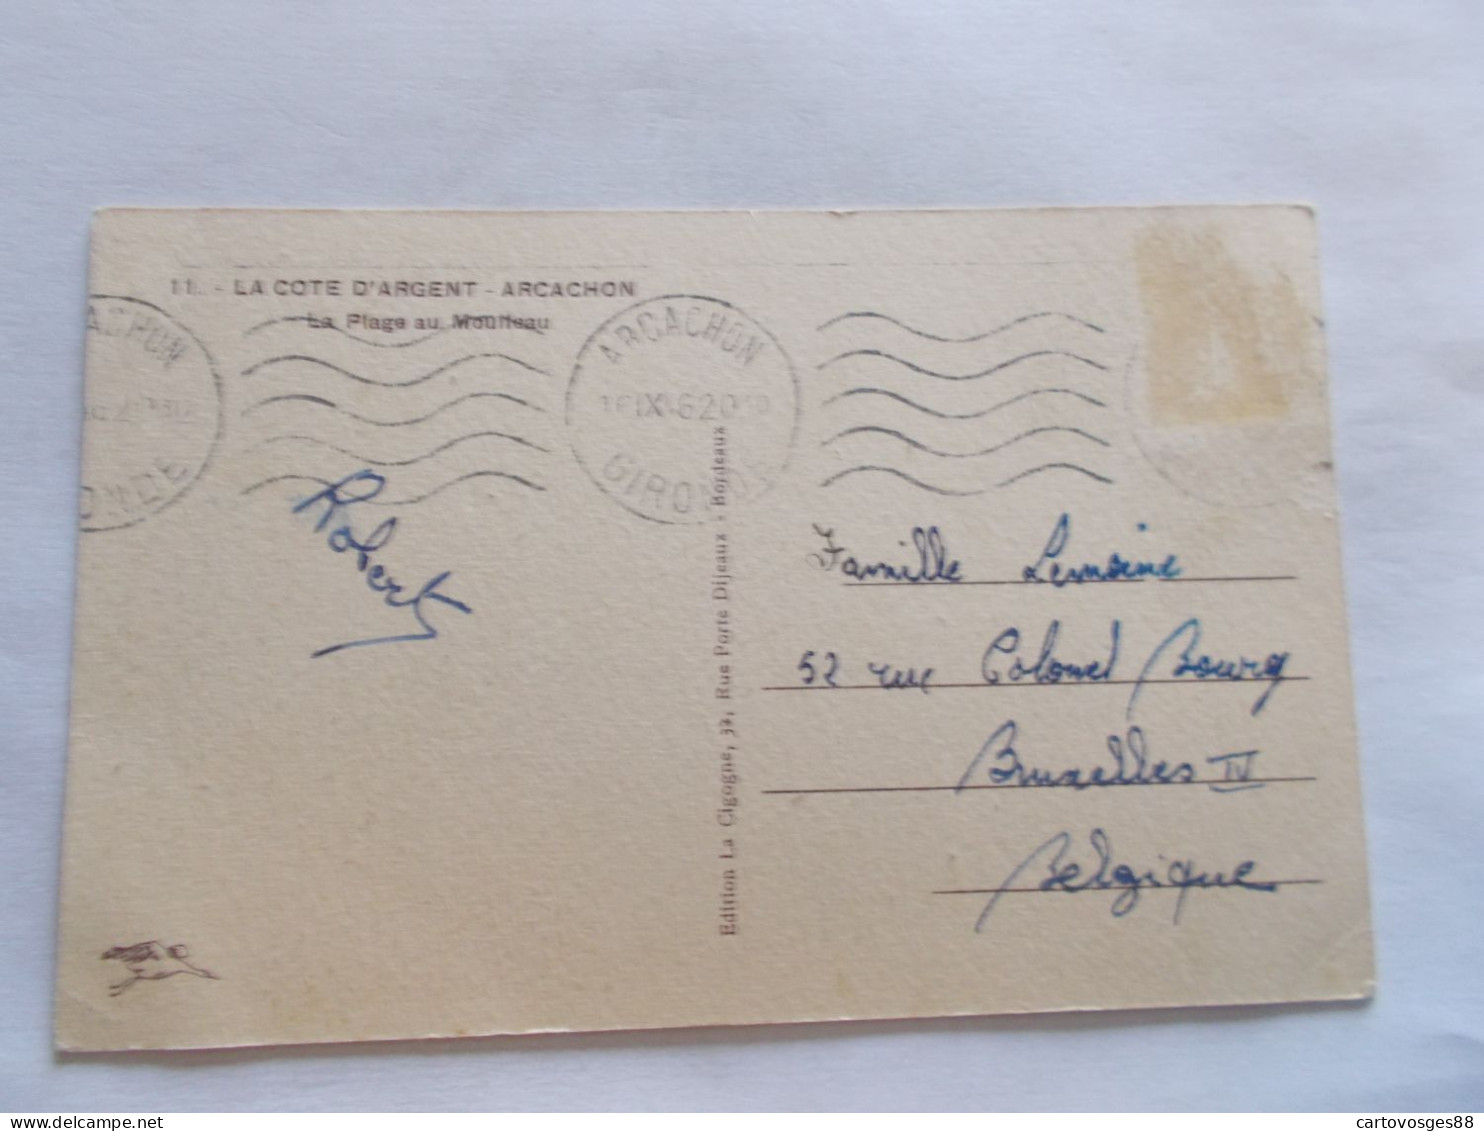 11. - LA COTE D'ARGENT - ARCACHON
La Plage au Moulleau
ARCACHON
GIRONDE
Robert
Edition La Cigogne, 32, Rue Porte Dijeaux - Bordeaux
Famille Lemoine
52 rue Colonel Bourg
Bruxelles IV
Belgique
www.delcampe.net
cartovosges88